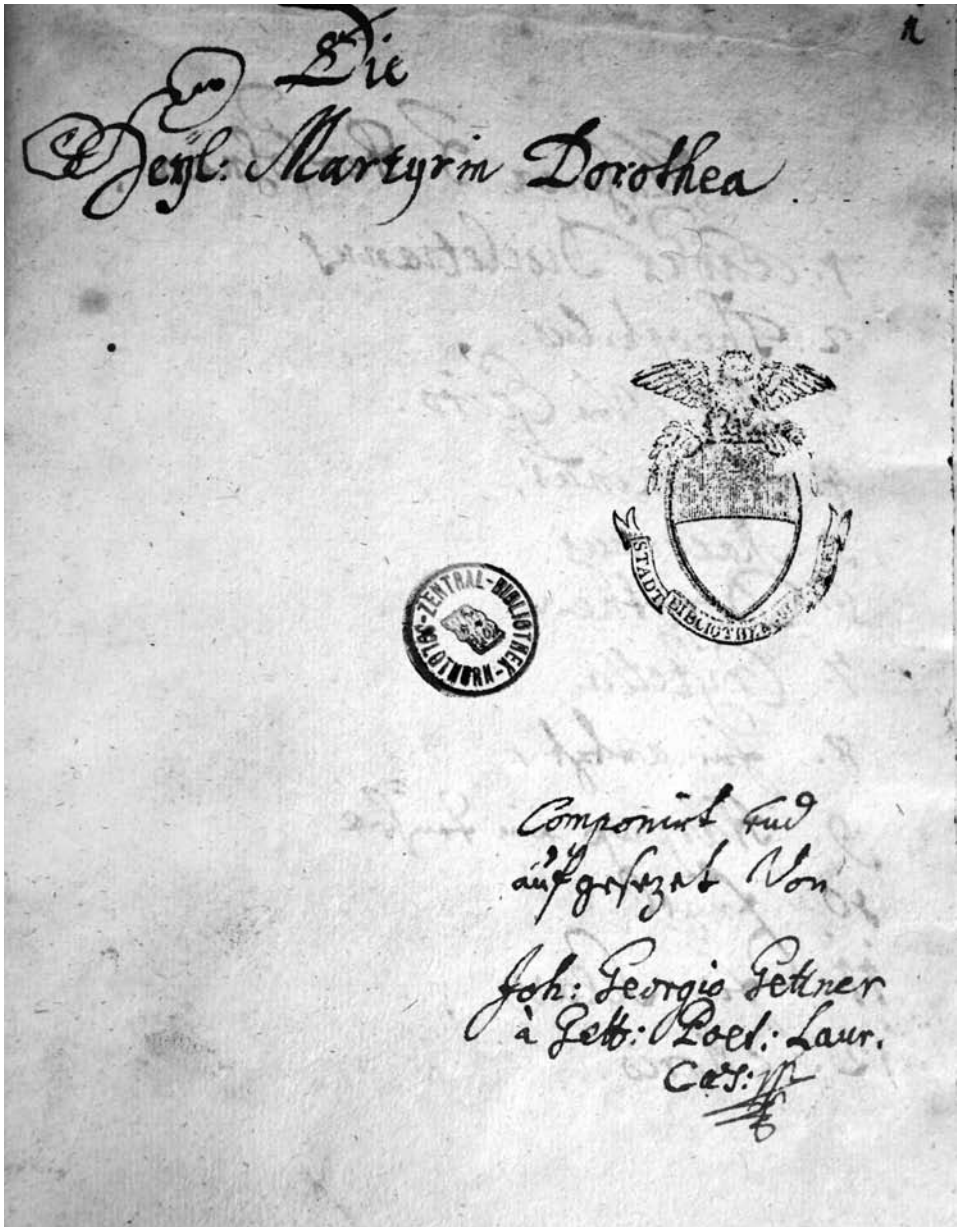 Die
Heyl: Martyrin Dorothea
STADT BIBLIOTHEK
ZENTRAL-BIBLIOTHEK-SOLOTHURN-
Componirt und
aufgesezet Von
Joh: Georgio Gettner
à Gett: Poet: Laur.
Caes: